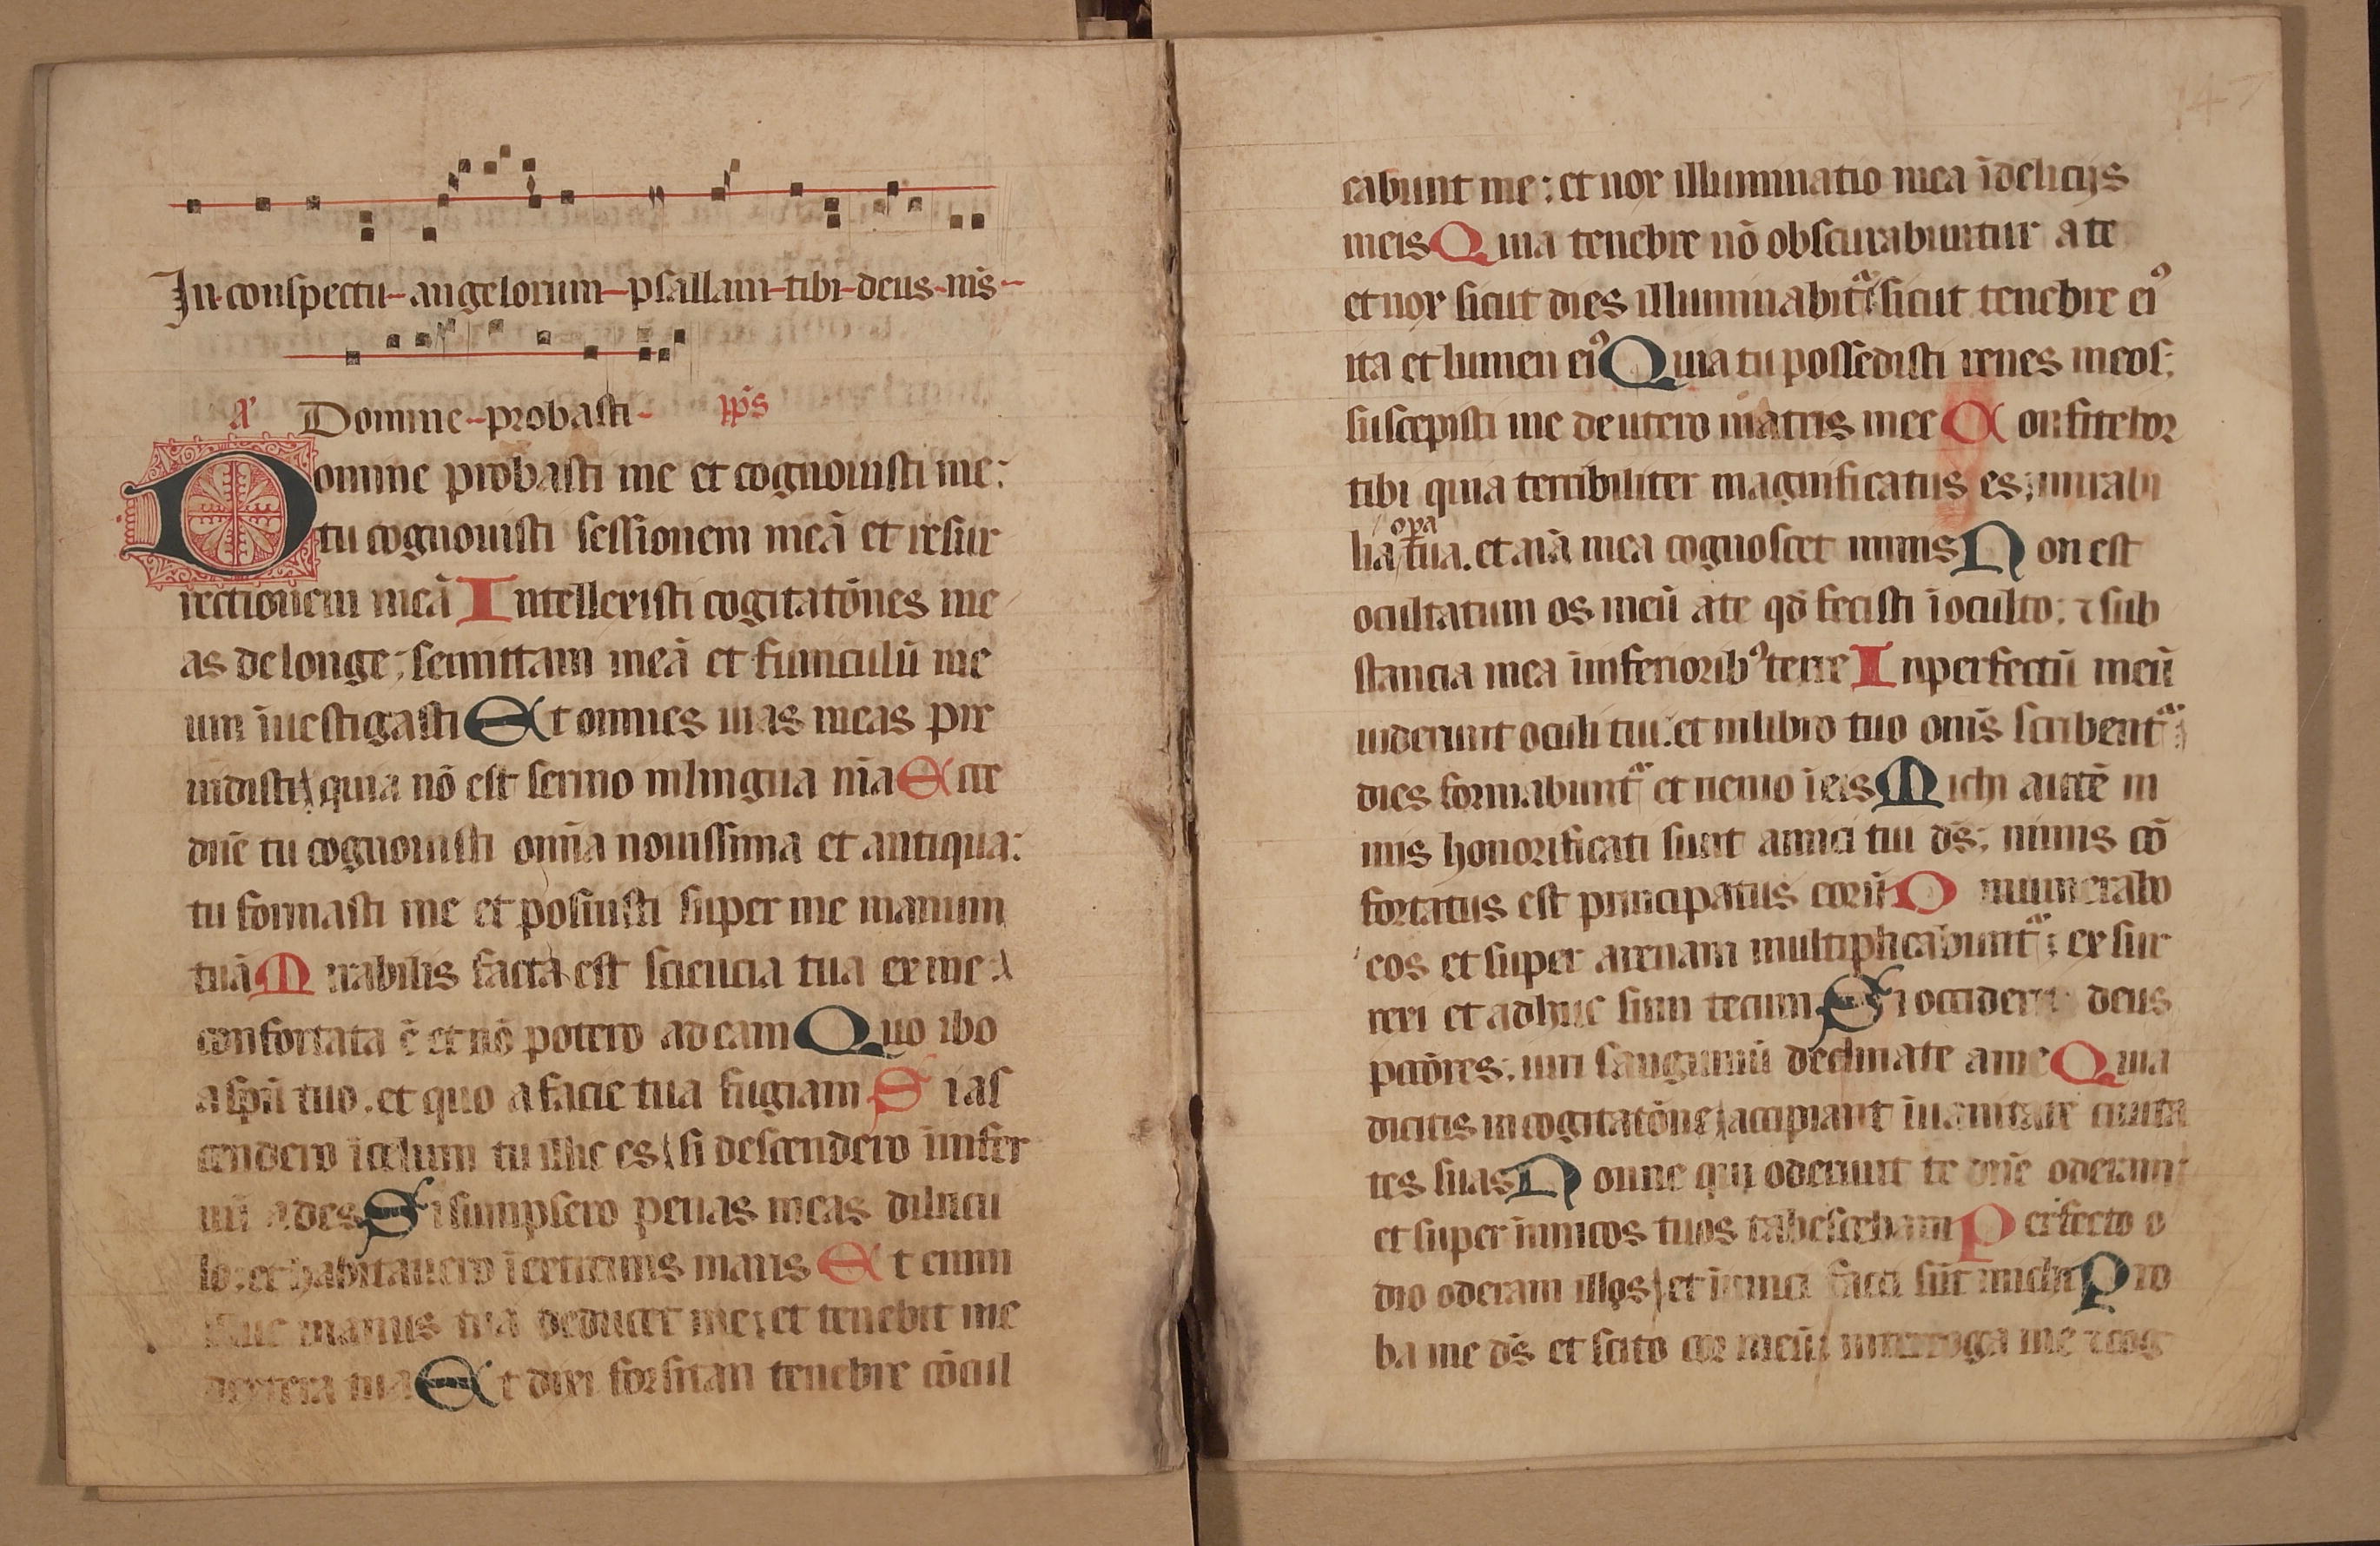 In conspectu angelorum psallam tibi deus m̄s
a᷑ Domine probasti pp̄s
Domine probasti me et cognouisti me:
tu cognouisti sessionem meā et resur
rectionem meā Intellexisti cogitatōnes me
as de longe; semittam meā et funiculū me
um īuestigasti Et omnes uias meas pre
uidisti; quia nō est sermo in lingua m̄a Ecce
dn̄e tu cognouisti om̄ia nouissima et antiqua:
tu formasti me et posuisti super me manum
tuā Mirabilis facta est sciencia tua ex me:
confortata ē et nō potero ad eam Quo ibo
a sp̄u tuo. et quo a facie tua fugiam Si as
cendero ī celum tu illic es; si descendero īnfer
nū ades Si sumpsero penas meas dilucu
lo: et habitauero ī extremis maris Et enim
illuc manus tua deducet me; et tenebit me
dextera tua Et dixi forsitan tenebre cōcul
cabunt me; et nox illuminatio mea ī delicijs
meis Quia tenebre nō obscurabuntur a te
et nox sicut dies illuminabitᷓ sicut tenebre eiꝰ
ita et lumen eiꝰ Quia tu possedisti renes meos:
suscepisti me de utero matris mee Confitebor
tibi quia terribiliter magnificatus es; mirabi
lia op̄a tua. et aīa mea cognoscet nimis Non est
ocultatum os meū a te qd̄ fecisti ī oculto; ⁊ sub
stancia mea īinferioribꝰ terre Inperfectū meū
uiderunt oculi tui. et in libro tuo om̄s scribentᷓ;
dies formabuntᷓ et nemo ī eis Michi autē ni
mis honorificati sunt amici tui ds̄; nimis cō
fortatus est principatus eorū Dinumerabo
eos et super arenam multiplicabuntᷓ; exsur
rexi et adhuc sum tecum Si occideris deus
pctōres; uiri sanguinū declinate a me Quia
dicitis in cogitatōne; accipiant ī uanitate ciuita
tes suas Nonne qui oderunt te dn̄e oderam
et super inimicos tuos tabescebam Perfecto o
dio oderam illos; et inimici facti sūt michi Pro
ba me ds̄ et scito cor meū; interroga me ⁊ cog